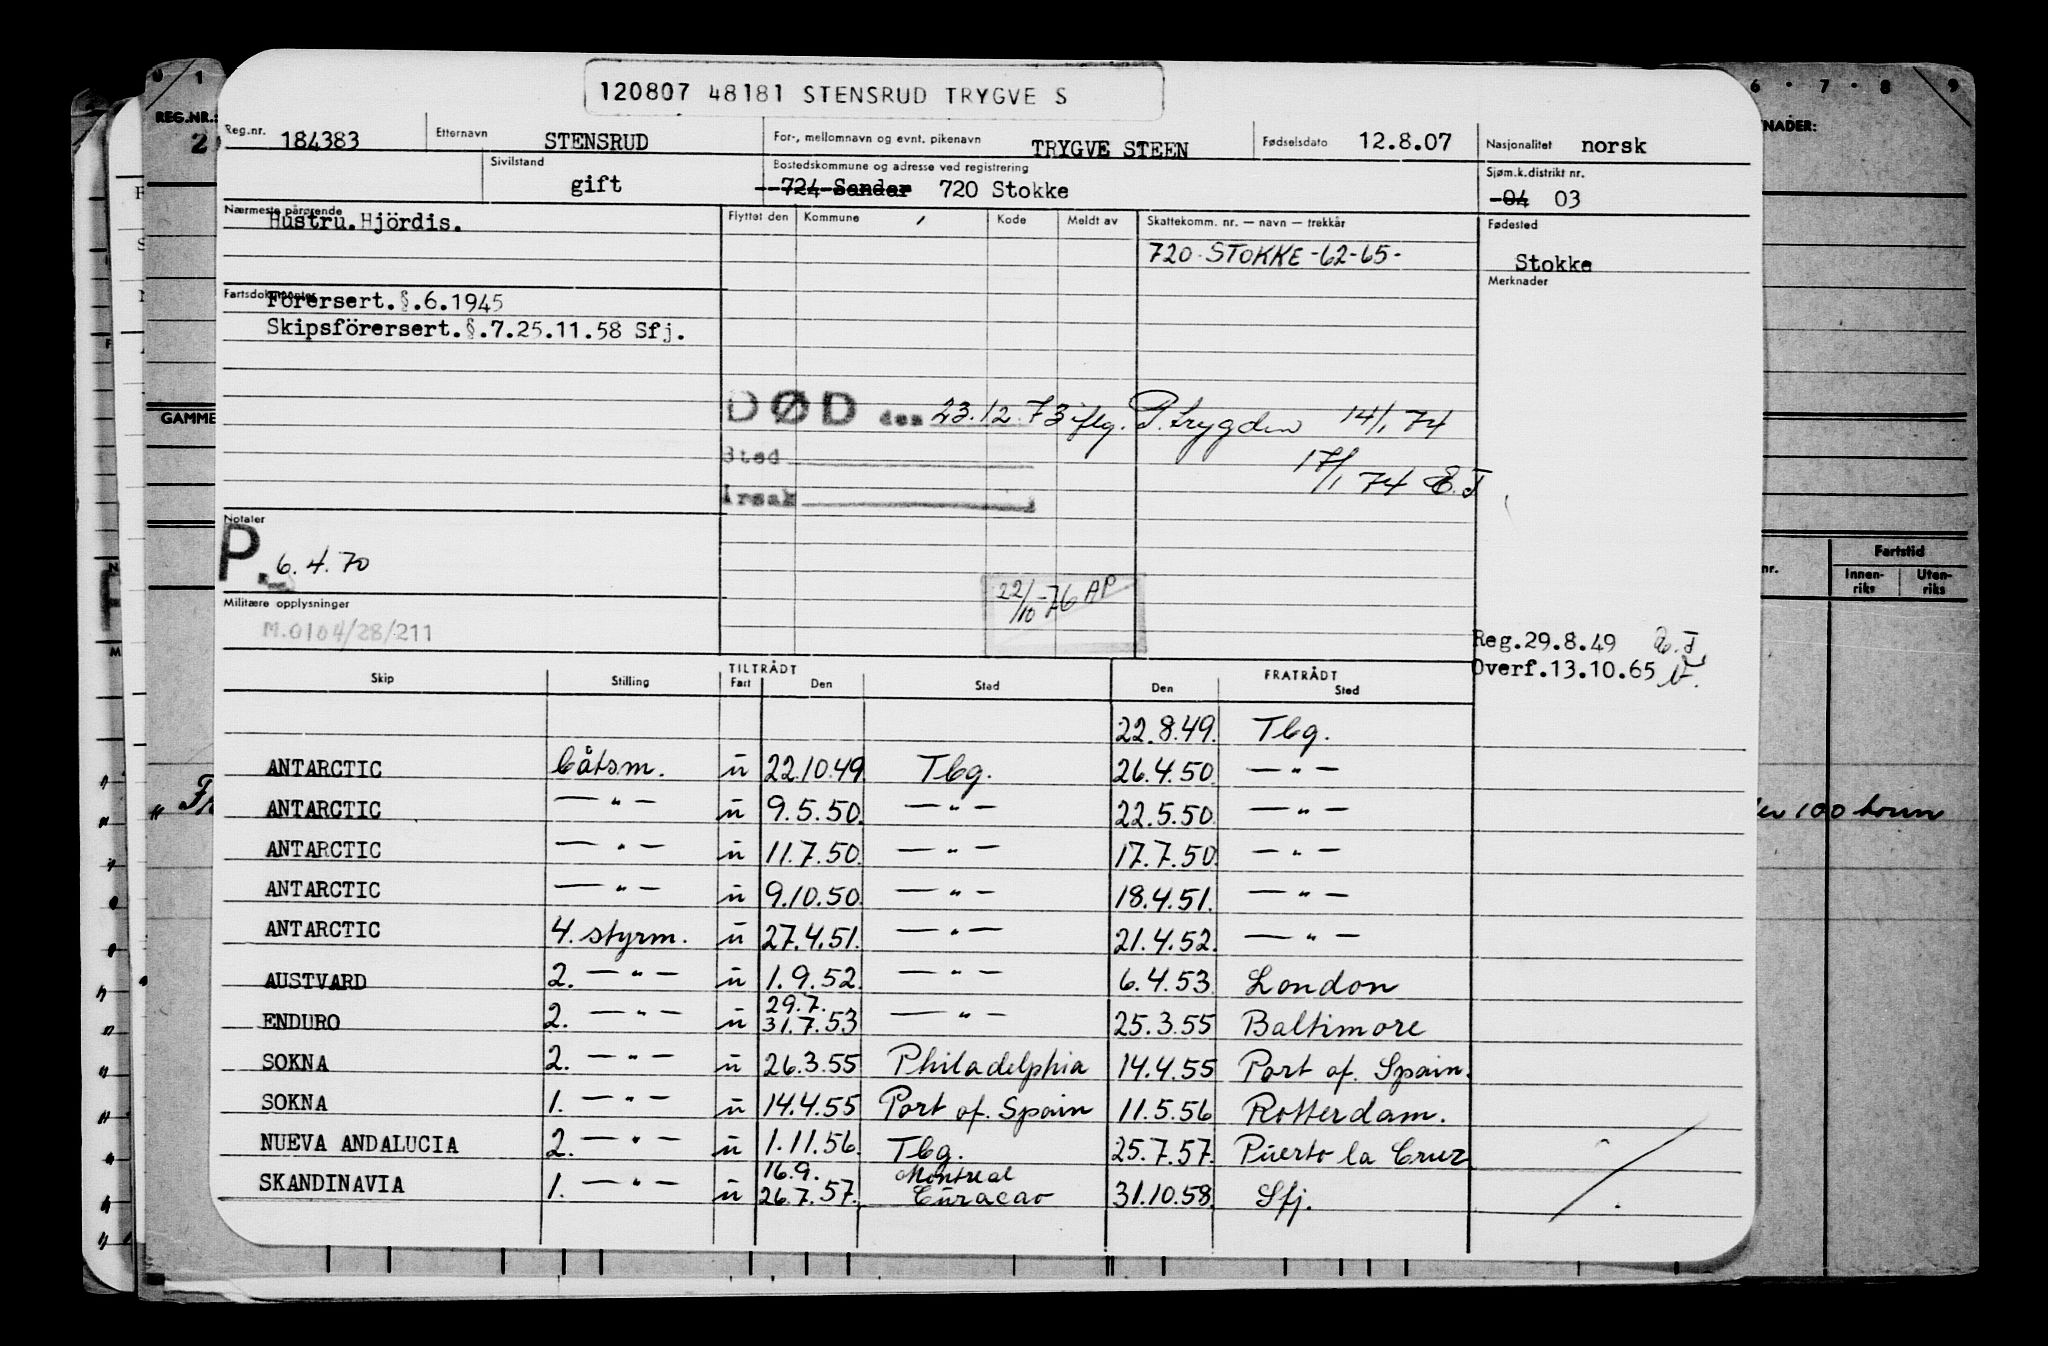 120807 48181 STENSRUD TRYGVE S
0 1 6 · 7 · 8 9
REG.NR.: NADER:
2
Reg.nr. 184383 Etternavn STENSRUD For-, mellomnavn og evnt. pikenavn TRYGVE STEEN Fødselsdato 12.8.07 Nasjonalitet norsk
Sivilstand gift Bostedskommune og adresse ved registrering 724 Sandar 720 Stokke Sjøm.k.distrikt nr. 04 03
Nærmeste pårørende Hustru.Hjördis. Flyttet den Kommune Kode Meldt av Skattekomm. nr. — navn — trekkår Fødested
720 STOKKE -62-65-
Stokke
Merknader
Fartsdokumenter Förersert.§.6.1945
Skipsförersert.§.7.25.11.58 Sfj.
GAMME
DØD den 23.12.73 iflg. P.trygden 14/1 74
Sted 17/1 74 E.J
Årsak
Notater
P. 6.4.70
22/10-76 AP
Militære opplysninger
M.0104/28/211
nr. Fartstid
Innen-riks Uten-riks
Reg.29.8.49 E.J.
Overf.13.10.65
Skip Stilling TILTRÅDT Fart Den Sted FRATRÅDT Den Sted
22.8.49. Tbg.
ANTARCTIC båtsm. u 22.10.49 Tbg. 26.4.50. — " —
ANTARCTIC — " — u 9.5.50. — " — 22.5.50. — " —
ANTARCTIC — " — u 11.7.50. — " — 17.7.50. — " —
ANTARCTIC — " — u 9.10.50. — " — 18.4.51. — " —
ANTARCTIC 4. styrm. u 27.4.51. — " — 21.4.52. — " —
AUSTVARD 2. — " — u 1.9.52. — " — 6.4.53 London
ENDURO 2. — " — u 29.7. 31.7.53 — " — 25.3.55 Baltimore
SOKNA 2. — " — u 26.3.55 Philadelphia 14.4.55 Port of. Spain.
SOKNA 1. — " — u 14.4.55 Port of. Spain 11.5.56 Rotterdam.
NUEVA ANDALUCIA 2. — " — u 1.11.56. Tbg. 25.7.57. Puerto la Cruz
SKANDINAVIA 1. — " — u 16.9. 26.7.57. Montreal Curacao 31.10.58. Sfj.
100 tonn